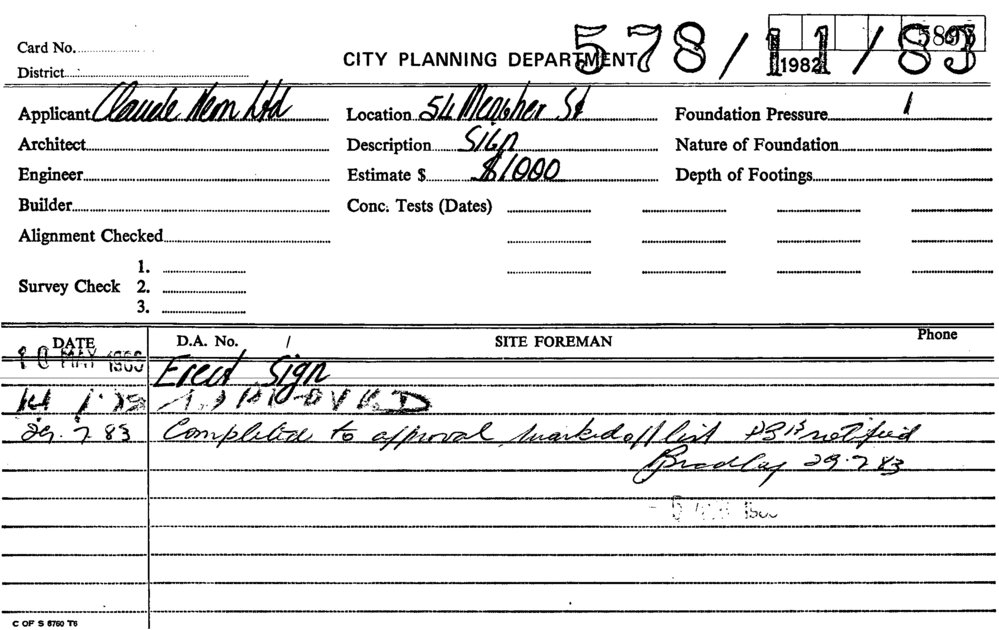 578/11/83
Card No.
CITY PLANNING DEPARTMENT
1982
District
Applicant Claude Neon Ltd Location 54 Meagher St Foundation Pressure
Architect Description Sign Nature of Foundation
Engineer Estimate $ $1000 Depth of Footings
Builder Conc. Tests (Dates)
Alignment Checked
1.
Survey Check 2.
3.
DATE D.A. No. / SITE FOREMAN Phone
MAY Erect Sign
APPROVED
29.7.83 Completed to approval marked off list notified
Bradley 29.7.83
C OF S 6760 T6